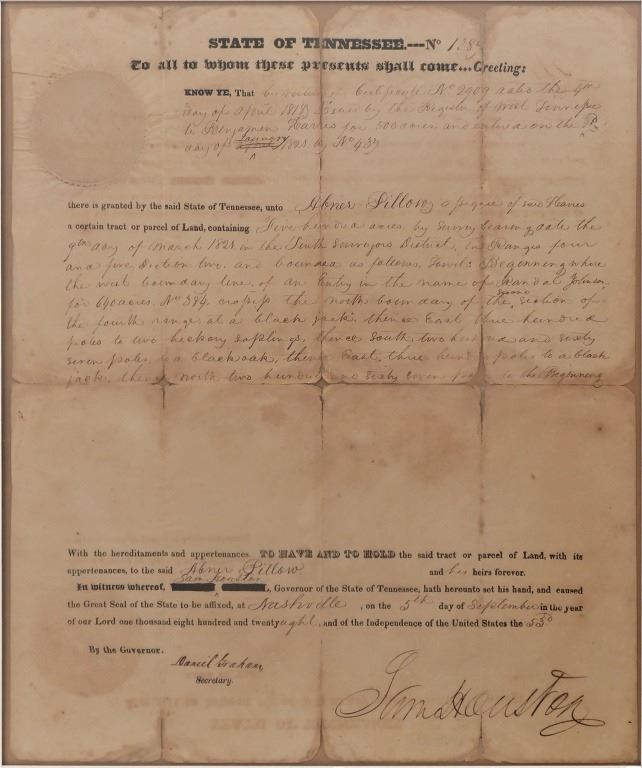 STATE OF TENNESSEE.---No 138
To all to whom these presents shall come...Greeting:
KNOW YE, That by virtue of Certificate No 2909 dated the 4th
day of April 1818 Issued by the Register of West Tennessee
to Benjamin Harris for 500 acres and entered on the
day of January 1821 by No 439
there is granted by the said State of Tennessee, unto Abner Pillow assignee of said Harris
a certain tract or parcel of Land, containing Five hundred acres by survey bearing date the
9th day of March 1821 in the Tenth Surveyors District, in Ranges four
and five Section two, and bounded as follows, Towit: Beginning where
the west boundary line of an Entry in the name of Randal Johnson
for 640 acres No 384 crosses the north boundary of the second section of
the fourth range at a black jack, thence East three hundred
poles to two hickory saplings, thence South two hundred and sixty
seven poles, to a black oak, thence East, three hundred poles to a black
jack, thence north two hundred and sixty seven poles to the Beginning
With the hereditaments and appertenances. TO HAVE AND TO HOLD the said tract or parcel of Land, with its
appertenances, to the said Abner Pillow and his heirs forever.
Sam Houston
In witness whereof, Governor of the State of Tennessee, hath hereunto set his hand, and caused
the Great Seal of the State to be affixed, at Nashville, on the 5th day of September in the year
of our Lord one thousand eight hundred and twenty eight, and of the Independence of the United States the 53d
By the Governor.
Daniel Graham,
Secretary.
Sam Houston